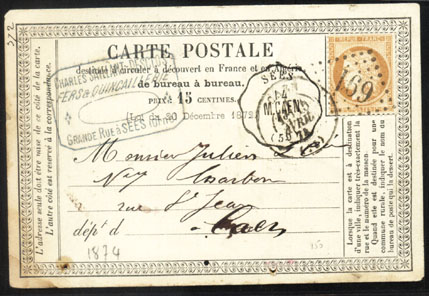 CARTE POSTALE
destinée à circuler à découvert en France et en Algérie
de bureau à bureau.
PRIX 15 CENTIMES.
(Loi du 20 Décembre 1872)
CHARLES
FERS & QUINCAILLERIE
GRANDE RUE à SÉES (ORNE)
SÉES
CAEN
169
Monsieur Julien
rue St Jean
dépt d Caen
1874
L'adresse seule doit être mise de ce côté de la carte.
L'autre côté est réservé à la correspondance.
Lorsque la carte est à destination
d'une ville, indiquer très-exactement la
rue et le numéro de la maison.
Quand elle est destinée pour une
commune rurale, indiquer le nom du
bureau de poste qui la dessert.